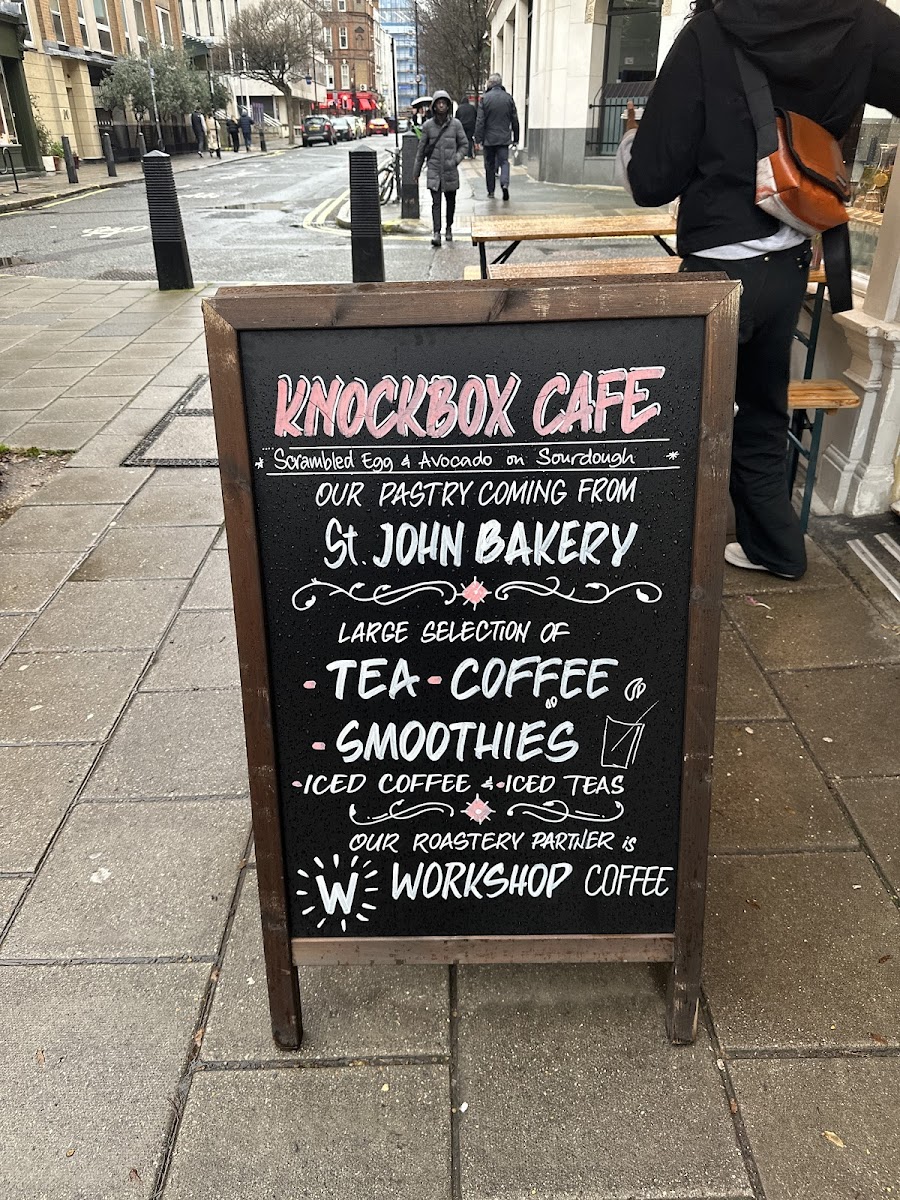 KNOCKBOX CAFE
* Scrambled Egg & Avocado on Sourdough *
OUR PASTRY COMING FROM
St. JOHN BAKERY
LARGE SELECTION OF
- TEA - COFFEE
- SMOOTHIES
- ICED COFFEE & - ICED TEAS
OUR ROASTERY PARTNER is
W WORKSHOP COFFEE